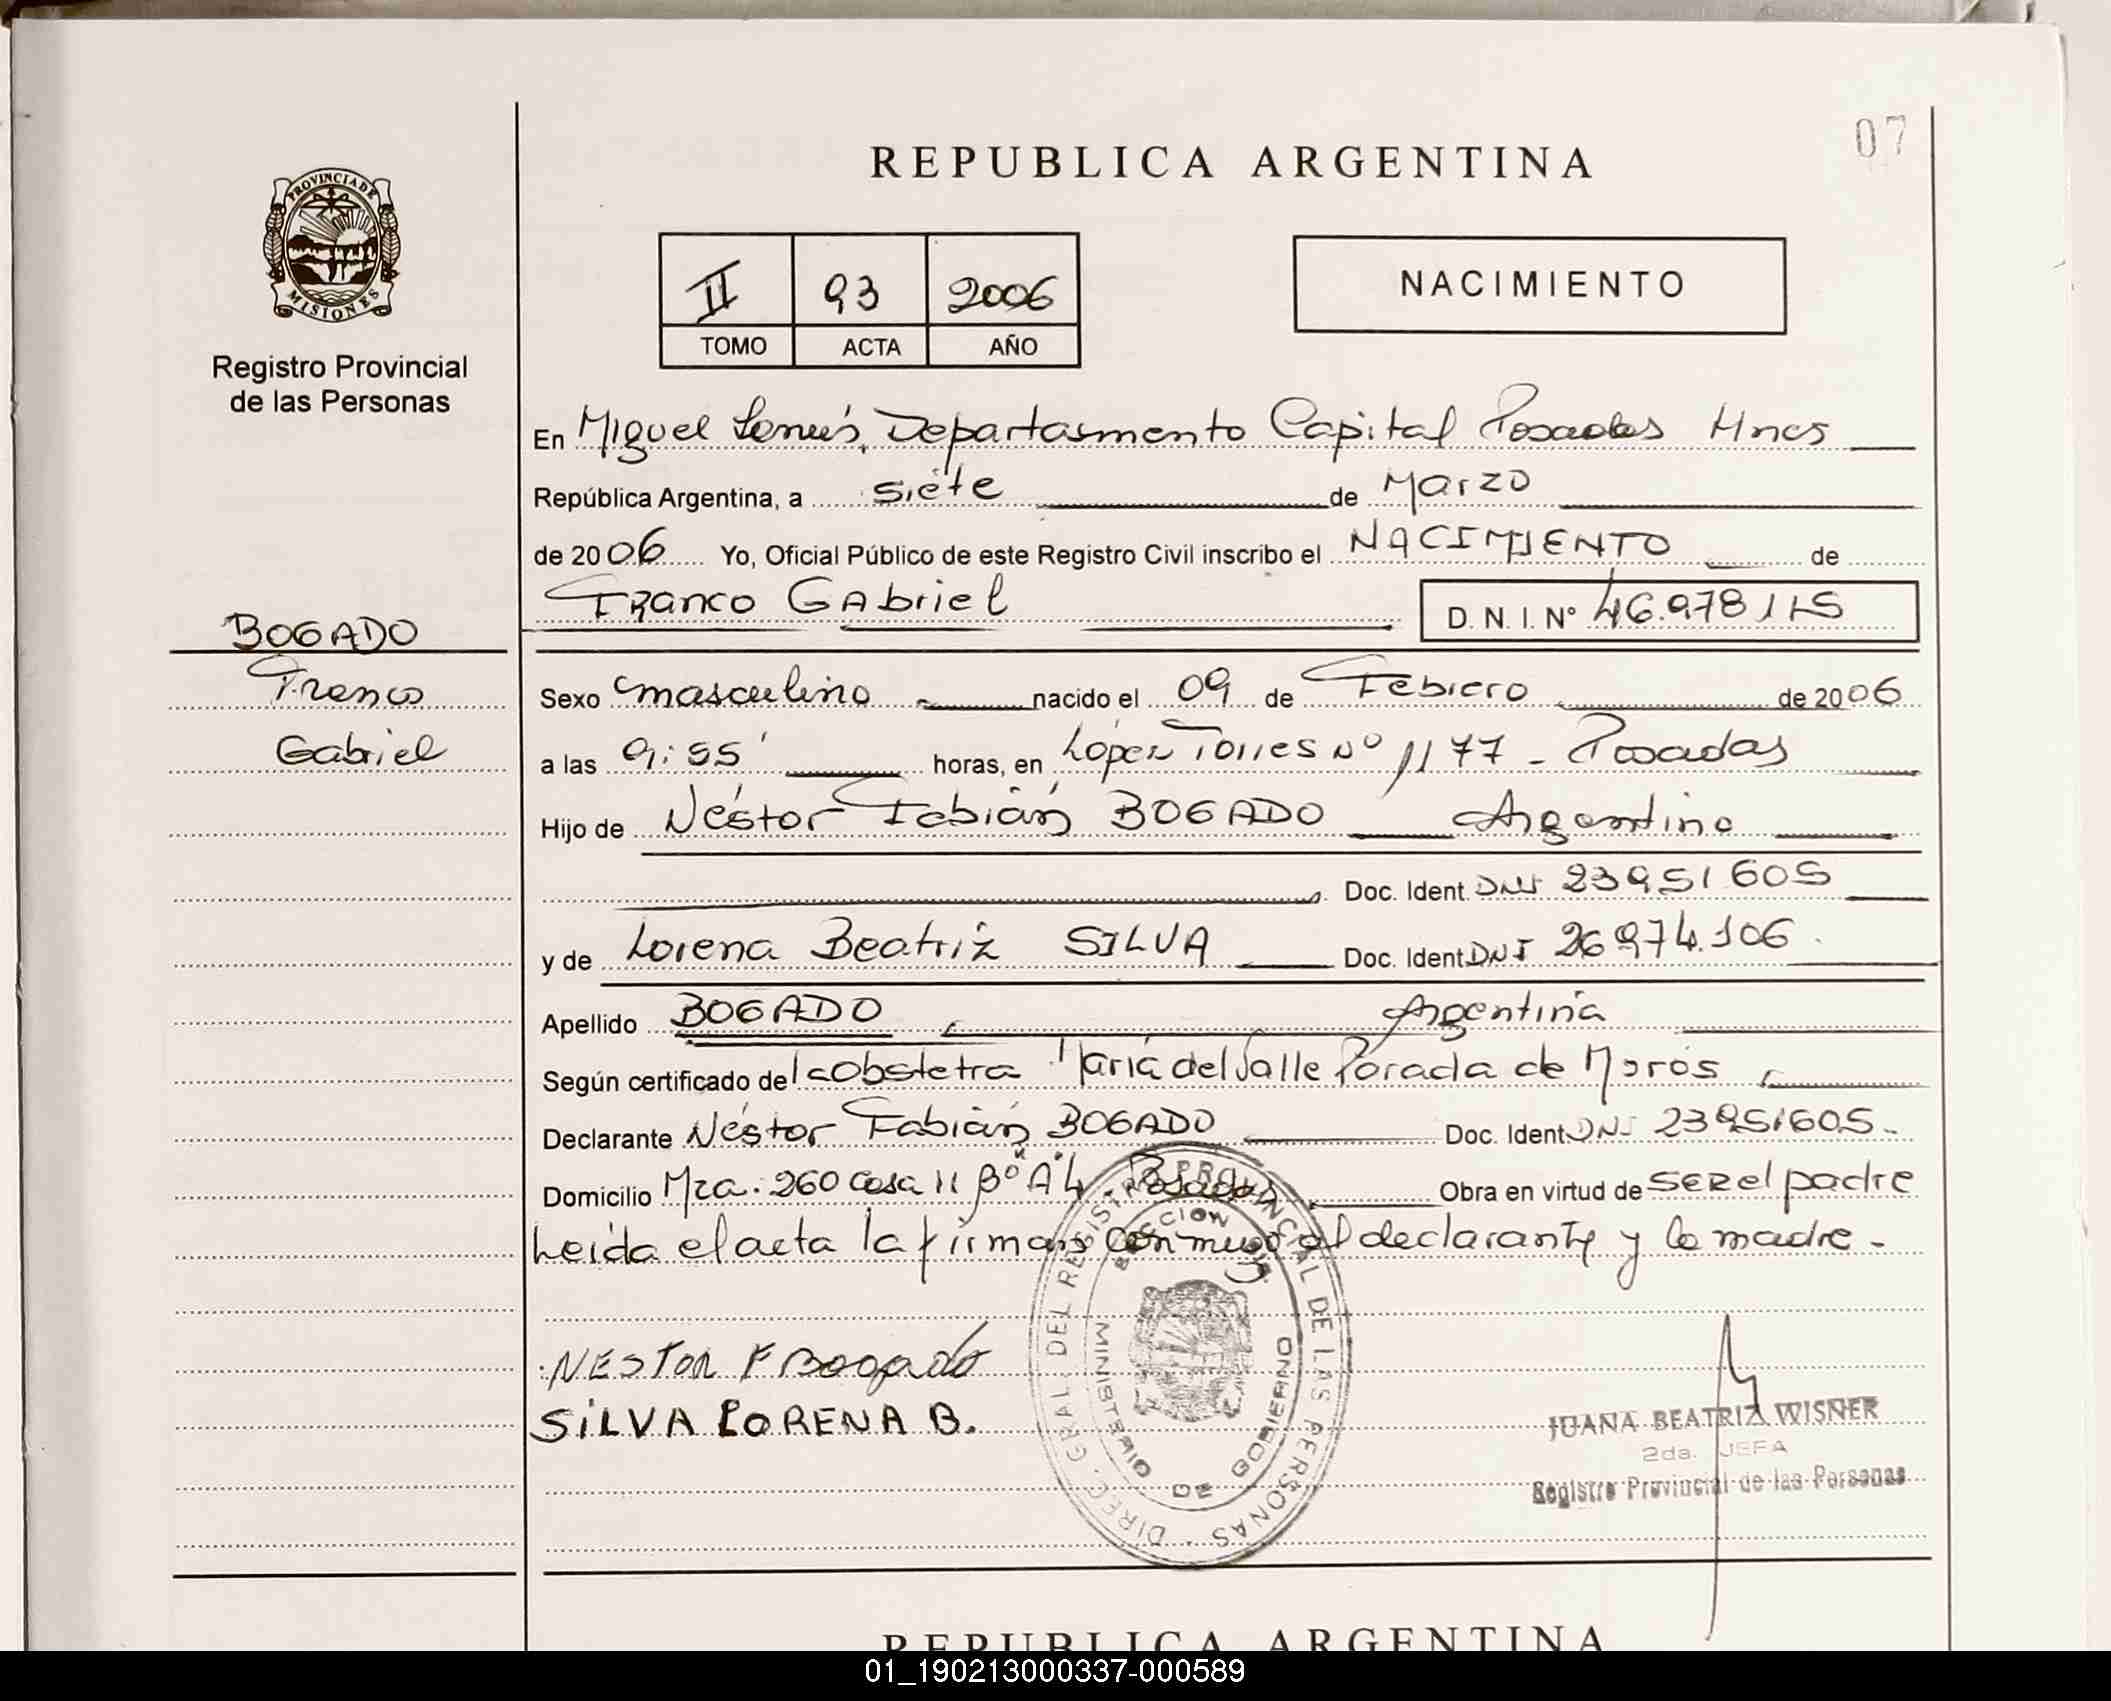 07
REPUBLICA ARGENTINA
PROVINCIA DE MISIONES
Registro Provincial
de las Personas
II 93 2006
TOMO ACTA AÑO
NACIMIENTO
En Miguel Lanús, Departamento Capital Posadas Mnes
República Argentina, a siete de Marzo
de 2006 Yo, Oficial Público de este Registro Civil inscribo el NACIMIENTO de
Franco Gabriel D. N. I. Nº 46.978115
BOGADO
Franco
Gabriel
Sexo masculino nacido el 09 de Febrero de 2006
a las 9:55' horas, en López Torres Nº 1177 - Posadas
Hijo de Néstor Fabián BOGADO Argentino
Doc. Ident. DNI 23951605
y de Lorena Beatriz SILVA Doc. Ident DNI 26974.106.
Apellido BOGADO Argentina
Según certificado de la Obstetra María del Valle Parada de
Declarante Néstor Fabián BOGADO Doc. Ident DNI 23951605.-
Domicilio Mza. 260 casa 11 Bº "A"4 Posadas Obra en virtud de SER el padre
Leída el acta la firman conmigo el declarante y la madre.-
NESTOR F BOGADO
SILVA LORENA B.
DIREC. GRAL. DEL REGISTRO PROVINCIAL DE LAS PERSONAS
MINISTERIO DE GOBIERNO
JUANA BEATRIZ WISNER
2da. JEFA
Registro Provincial de las Personas
REPUBLICA ARGENTINA
01_190213000337-000589